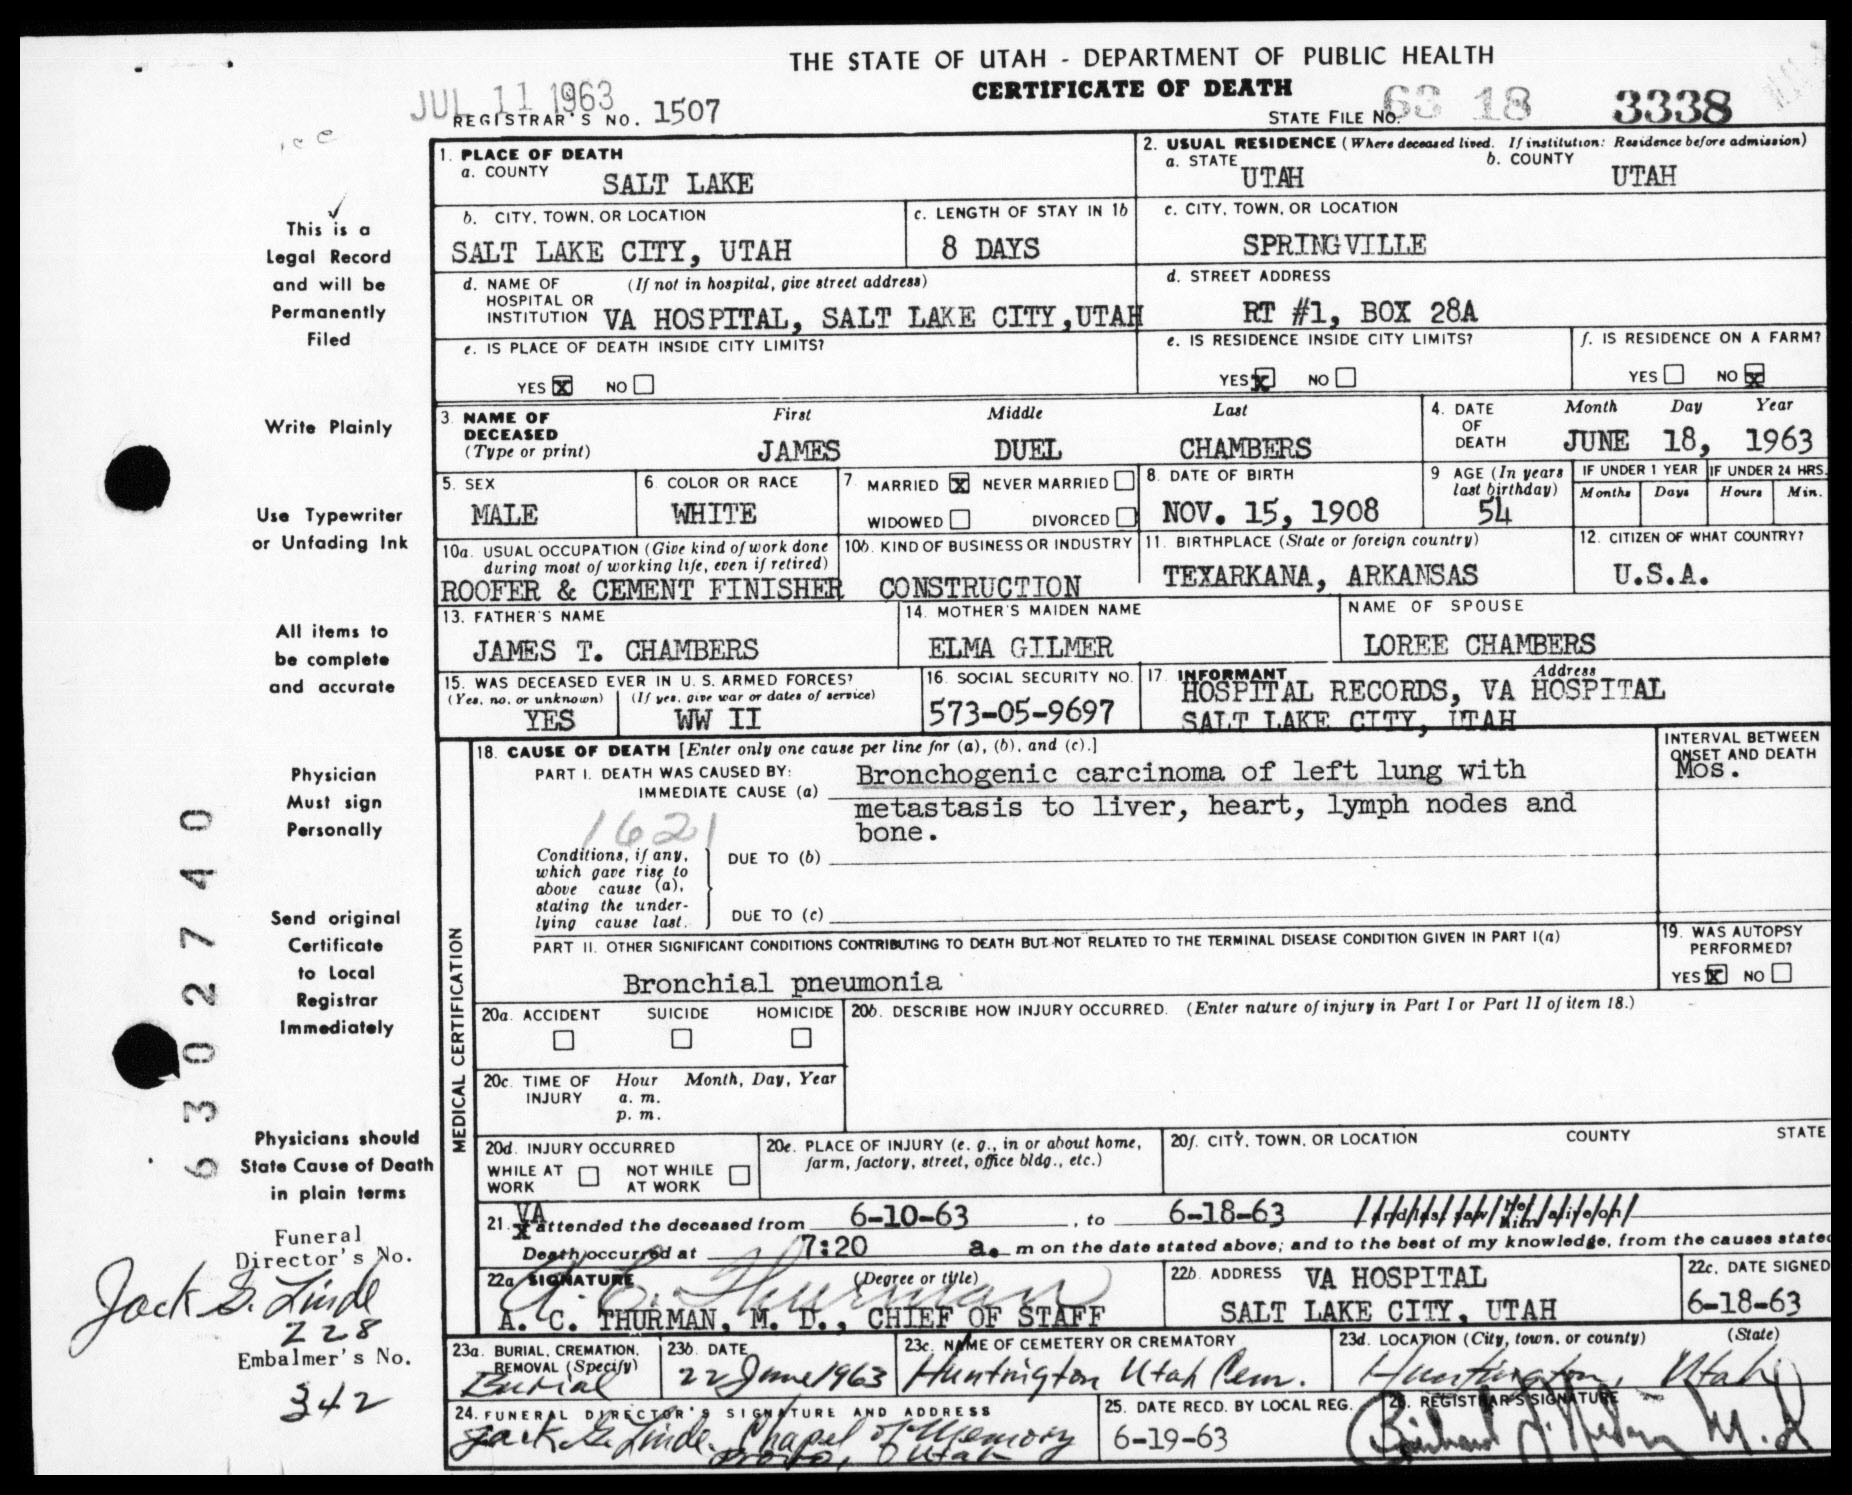 THE STATE OF UTAH - DEPARTMENT OF PUBLIC HEALTH
CERTIFICATE OF DEATH
JUL 11 1963
REGISTRAR'S NO. 1507
STATE FILE NO. 63 18 3338
1. PLACE OF DEATH
a. COUNTY SALT LAKE
2. USUAL RESIDENCE (Where deceased lived. If institution: Residence before admission)
a. STATE UTAH b. COUNTY UTAH
b. CITY, TOWN, OR LOCATION SALT LAKE CITY, UTAH
c. LENGTH OF STAY IN 1b 8 DAYS
c. CITY, TOWN, OR LOCATION SPRINGVILLE
d. NAME OF HOSPITAL OR INSTITUTION (If not in hospital, give street address)
VA HOSPITAL, SALT LAKE CITY, UTAH
d. STREET ADDRESS RT #1, BOX 28A
e. IS PLACE OF DEATH INSIDE CITY LIMITS?
YES X NO
e. IS RESIDENCE INSIDE CITY LIMITS?
YES X NO
f. IS RESIDENCE ON A FARM?
YES NO X
3. NAME OF DECEASED (Type or print)
First Middle Last
JAMES DUEL CHAMBERS
4. DATE OF DEATH Month Day Year
JUNE 18, 1963
5. SEX MALE
6. COLOR OR RACE WHITE
7. MARRIED X NEVER MARRIED
WIDOWED DIVORCED
8. DATE OF BIRTH NOV. 15, 1908
9 AGE (In years last birthday) 54
IF UNDER 1 YEAR Months Days
IF UNDER 24 HRS. Hours Min.
10a. USUAL OCCUPATION (Give kind of work done during most of working life, even if retired)
ROOFER & CEMENT FINISHER
10b. KIND OF BUSINESS OR INDUSTRY CONSTRUCTION
11. BIRTHPLACE (State or foreign country) TEXARKANA, ARKANSAS
12. CITIZEN OF WHAT COUNTRY? U.S.A.
13. FATHER'S NAME JAMES T. CHAMBERS
14. MOTHER'S MAIDEN NAME ELMA GILMER
NAME OF SPOUSE LOREE CHAMBERS
15. WAS DECEASED EVER IN U.S. ARMED FORCES?
(Yes, no, or unknown) (If yes, give war or dates of service)
YES WW II
16. SOCIAL SECURITY NO. 573-05-9697
17. INFORMANT Address
HOSPITAL RECORDS, VA HOSPITAL
SALT LAKE CITY, UTAH
18. CAUSE OF DEATH [Enter only one cause per line for (a), (b), and (c).]
INTERVAL BETWEEN ONSET AND DEATH
PART I. DEATH WAS CAUSED BY:
IMMEDIATE CAUSE (a) Bronchogenic carcinoma of left lung with
metastasis to liver, heart, lymph nodes and
bone.
Mos.
1621
Conditions, if any, which gave rise to above cause (a), stating the underlying cause last.
DUE TO (b)
DUE TO (c)
PART II. OTHER SIGNIFICANT CONDITIONS CONTRIBUTING TO DEATH BUT NOT RELATED TO THE TERMINAL DISEASE CONDITION GIVEN IN PART I(a)
Bronchial pneumonia
19. WAS AUTOPSY PERFORMED?
YES X NO
MEDICAL CERTIFICATION
20a. ACCIDENT SUICIDE HOMICIDE
20b. DESCRIBE HOW INJURY OCCURRED. (Enter nature of injury in Part I or Part II of item 18.)
20c. TIME OF INJURY Hour Month, Day, Year
a. m.
p. m.
20d. INJURY OCCURRED
WHILE AT WORK NOT WHILE AT WORK
20e. PLACE OF INJURY (e. g., in or about home, farm, factory, street, office bldg., etc.)
20f. CITY, TOWN, OR LOCATION COUNTY STATE
21. VA attended the deceased from 6-10-63, to 6-18-63 and last saw alive on
Death occurred at 7:20 a. m on the date stated above; and to the best of my knowledge, from the causes stated
22a SIGNATURE (Degree or title)
A. C. Thurman
A. C. THURMAN, M. D., CHIEF OF STAFF
22b. ADDRESS VA HOSPITAL
SALT LAKE CITY, UTAH
22c. DATE SIGNED 6-18-63
23a. BURIAL, CREMATION, REMOVAL (Specify) Burial
23b. DATE 22 June 1963
23c. NAME OF CEMETERY OR CREMATORY Huntington Utah Cem.
23d. LOCATION (City, town, or county) (State)
Huntington, Utah
24. FUNERAL DIRECTOR'S SIGNATURE AND ADDRESS
Jack G. Linde. Chapel of Memory
Provo, Utah
25. DATE RECD. BY LOCAL REG. 6-19-63
26. REGISTRAR'S SIGNATURE
M.D
This is a
Legal Record
and will be
Permanently
Filed
Write Plainly
Use Typewriter
or Unfading Ink
All items to
be complete
and accurate
Physician
Must sign
Personally
Send original
Certificate
to Local
Registrar
Immediately
Physicians should
State Cause of Death
in plain terms
Funeral
Director's No.
Jack G. Linde
228
Embalmer's No.
342
6302740